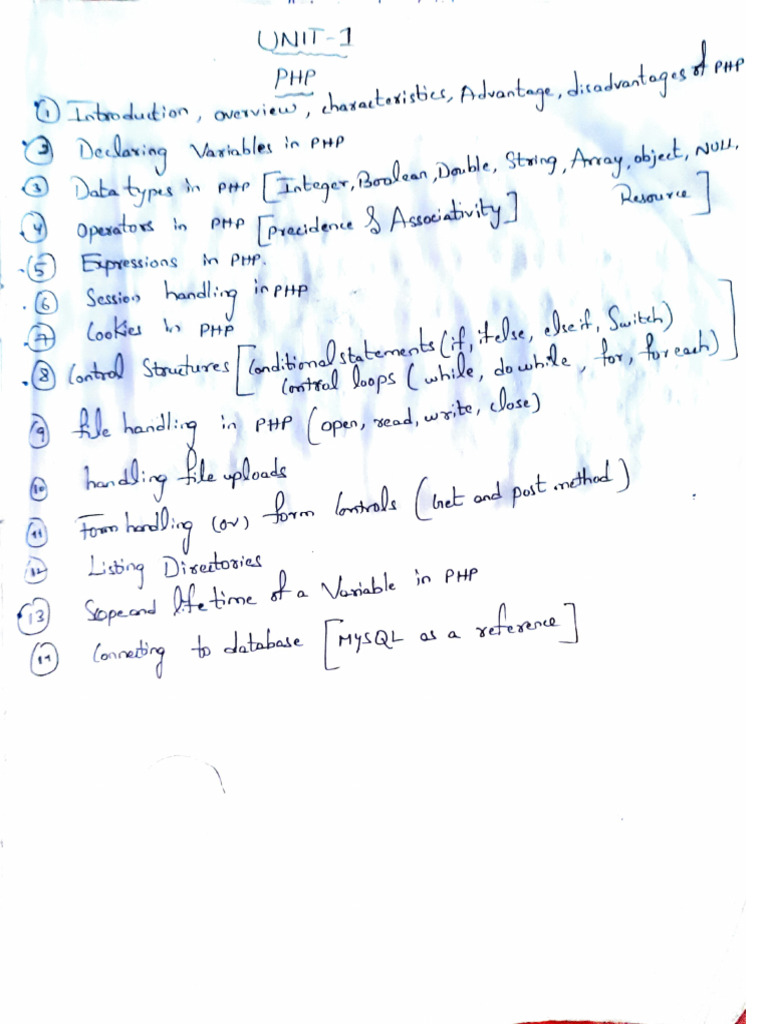 UNIT-1
PHP
① Introduction, overview, characteristics, Advantage, disadvantages of PHP
② Declaring Variables in PHP
③ Data types in PHP [Integer, Boolean, Double, String, Array, object, NULL,
Resource]
④ Operators in PHP [precidence & Associativity]
⑤ Expressions in PHP.
⑥ Session handling in PHP
⑦ Cookies in PHP
⑧ Control Structures [Conditional statements (if, if else, else if, Switch)
Control loops (while, do while, for, for each)]
⑨ file handling in PHP (open, read, write, close)
⑩ handling file uploads
⑪ Form handling (or) form Controls (Get and post method)
⑫ Listing Directories
⑬ Scope and life time of a Variable in PHP
⑭ Connecting to database [MySQL as a reference]